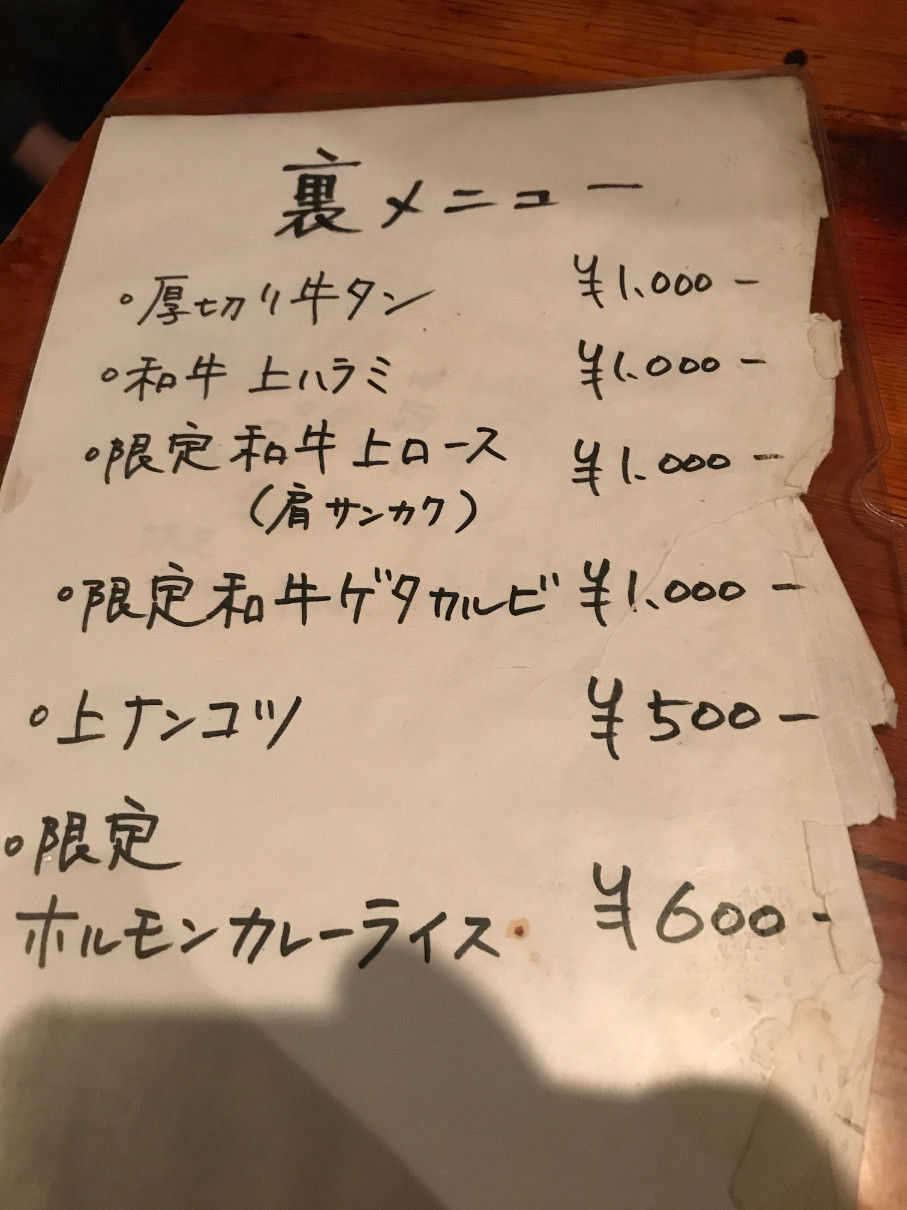 裏メニュー
◦厚切り牛タン ¥1.000-
◦和牛 上ハラミ ¥1.000-
◦限定 和牛 上ロース ¥1.000-
(肩サンカク)
◦限定和牛ゲタカルビ ¥1.000-
◦上ナンコツ ¥500-
◦限定
ホルモンカレーライス ¥600-